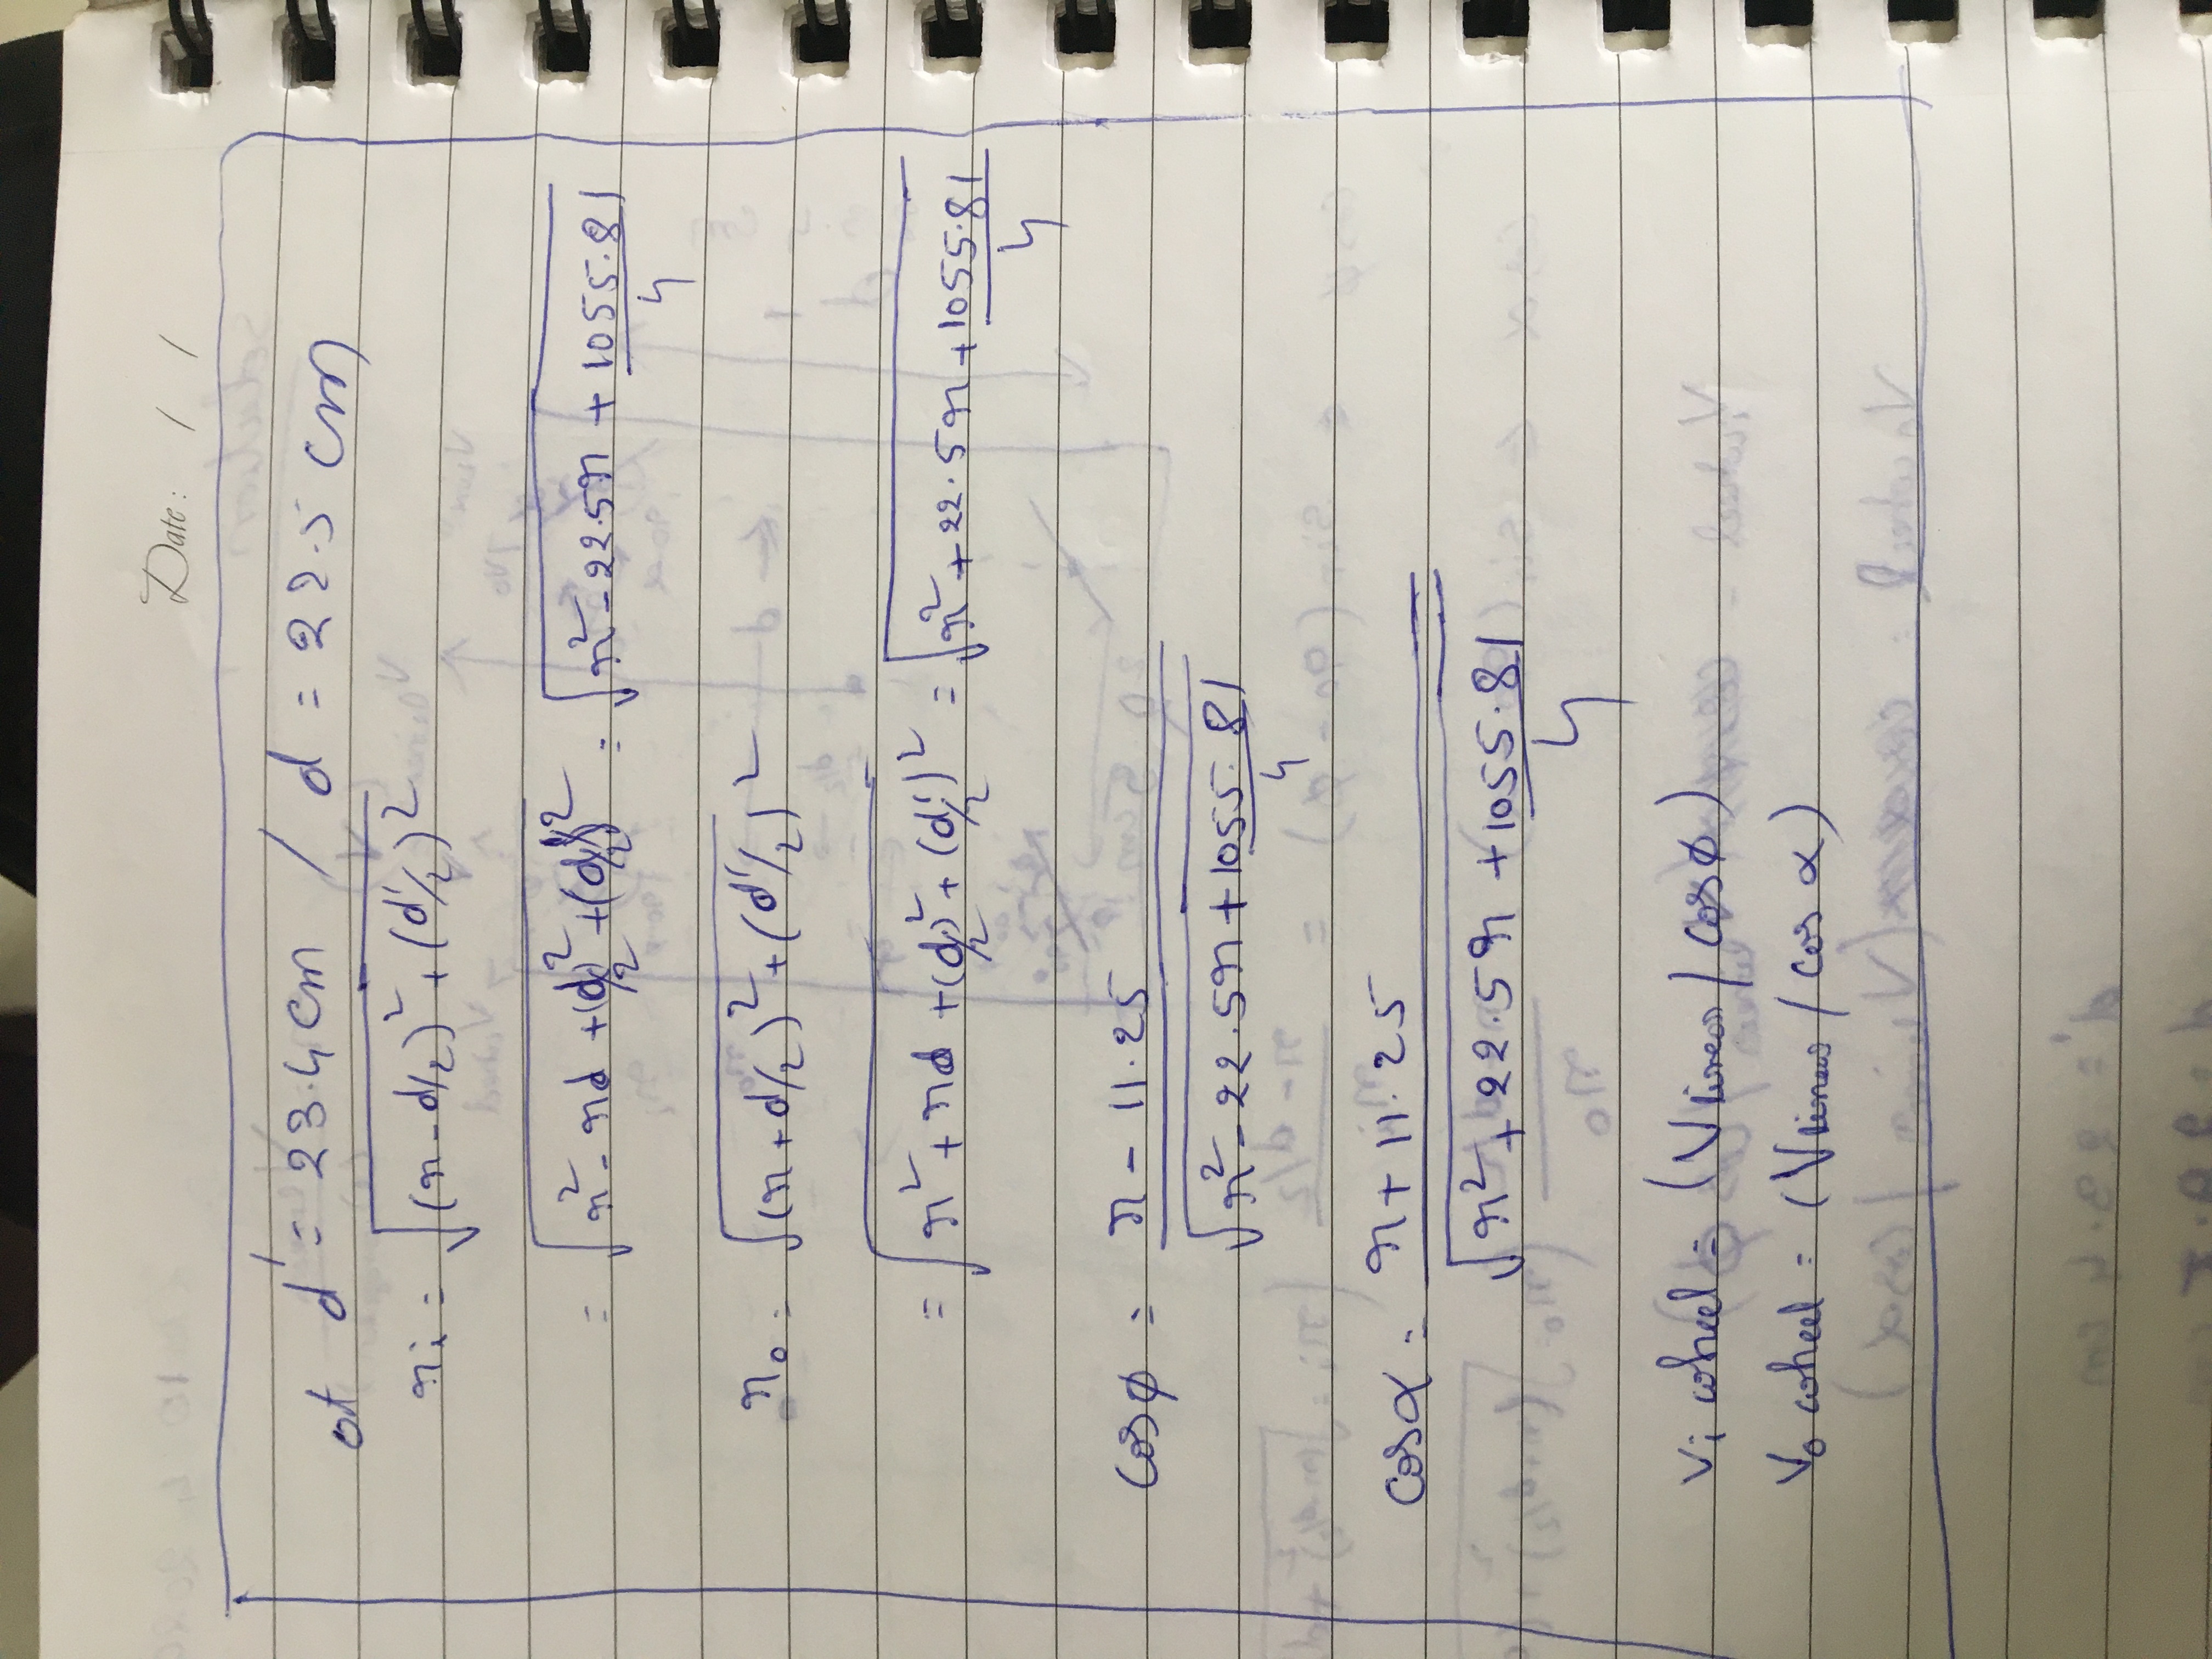 Date: / /
at d' = 23.4 cm / d = 22.5 cm
ri = √((r - d/2)² + (d'/2)²)
= √(r² - rd + (d/2)² + (d'/2)²) = √(r² - 22.5r + 1055.81/4)
ro = √((r + d/2)² + (d'/2)²)
= √(r² + rd + (d/2)² + (d'/2)²) = √(r² + 22.5r + 1055.81/4)
cosϕ = (r - 11.25) / √(r² - 22.5r + 1055.81/4)
cosα = (r + 11.25) / √(r² + 22.5r + 1055.81/4)
Vi wheel = (Vlinear / cosϕ)
Vo wheel = (Vlinear / cos α)